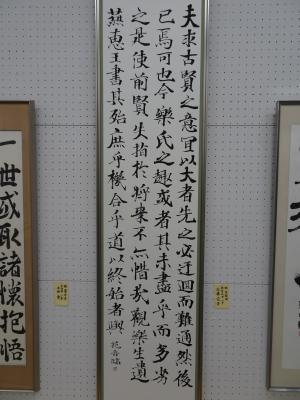 夫求古賢之意宜以大者先之必迂迴而難通然後
已焉可也今樂氏之趣或者其未盡乎而多劣
之是使前賢失指於將来不亦惜哉觀樂生遺
燕恵王書其殆庶乎機合乎道以終始者與
一世或取諸懷抱悟